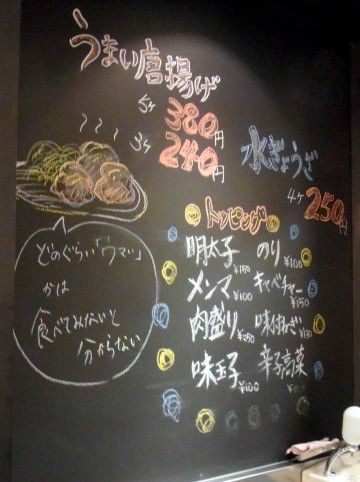 うまい唐揚げ
5ヶ 380円
3ヶ 240円
水ぎょうざ
4ヶ 250円
トッピング
明太子 ¥150
のり ¥100
メンマ ¥100
キャベチャー ¥150
肉盛り ¥250
味付ねぎ ¥150
味玉子 ¥100
辛子高菜
どのぐらい「ウマい」
かは
食べてみないと
分からない